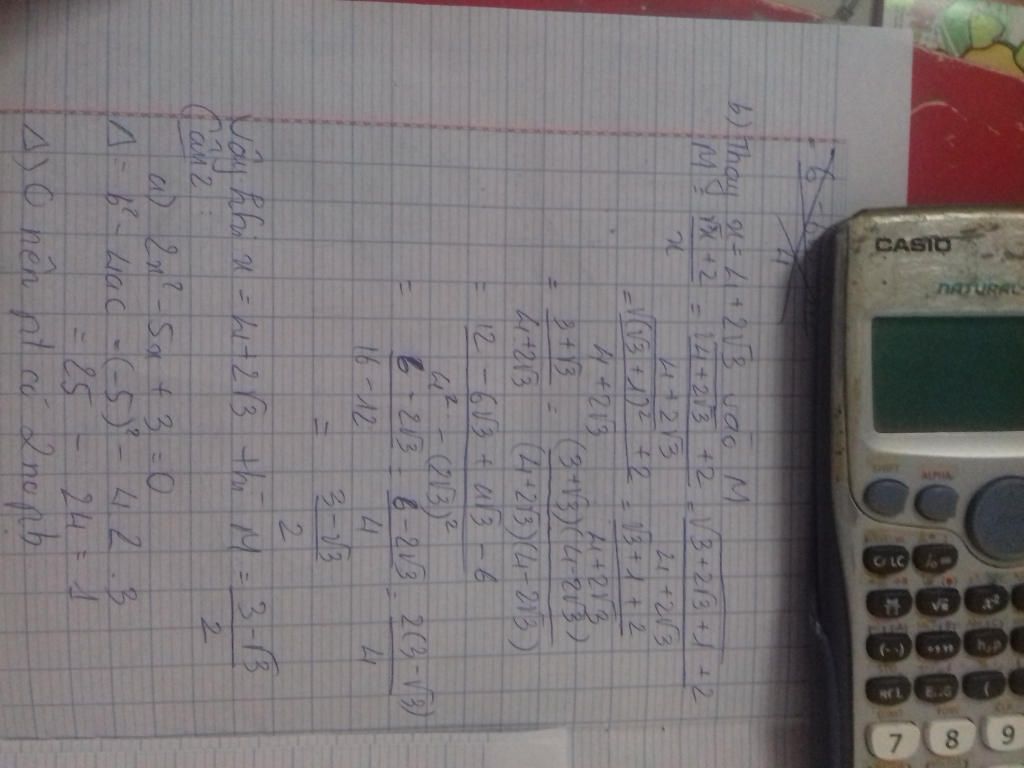 b) Thay x = 4 + 2√3 vào M
M = (√x + 2)/x = (√(4 + 2√3) + 2)/(4 + 2√3) = (√(3 + 2√3 + 1) + 2)/(4 + 2√3)
= (√((√3 + 1)²) + 2)/(4 + 2√3) = (√3 + 1 + 2)/(4 + 2√3)
= (3 + √3)/(4 + 2√3) = ((3 + √3)(4 - 2√3))/((4 + 2√3)(4 - 2√3))
= (12 - 6√3 + 4√3 - 6)/(4² - (2√3)²)
= (6 - 2√3)/(16 - 12) = (6 - 2√3)/4 = (2(3 - √3))/4
= (3 - √3)/2
Vậy khi x = 4 + 2√3 thì M = (3 - √3)/2
Câu 2:
a) 2x² - 5x + 3 = 0
Δ = b² - 4ac = (-5)² - 4.2.3
= 25 - 24 = 1
Δ > 0 nên pt có 2 no pb
CASIO
NATURAL
SHIFT
ALPHA
CALC
∫
x³
√
x²
(-)
hyp
RCL
ENG
(
7 8 9